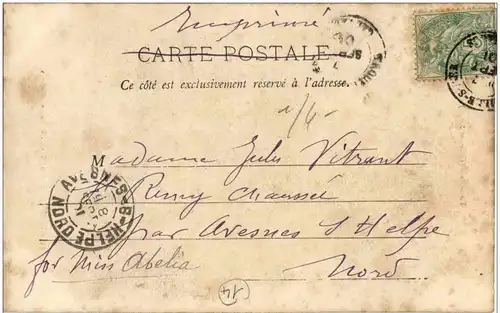 Imprimé
CARTE POSTALE
Ce côté est exclusivement réservé à l'adresse.
1/6
M adame Jules Vitrant
St Remy Chaussée
par Avesnes S Helpe
for Miss Abelia
Nord
14
AVESNES-S-HELPE (NORD)
SEPT